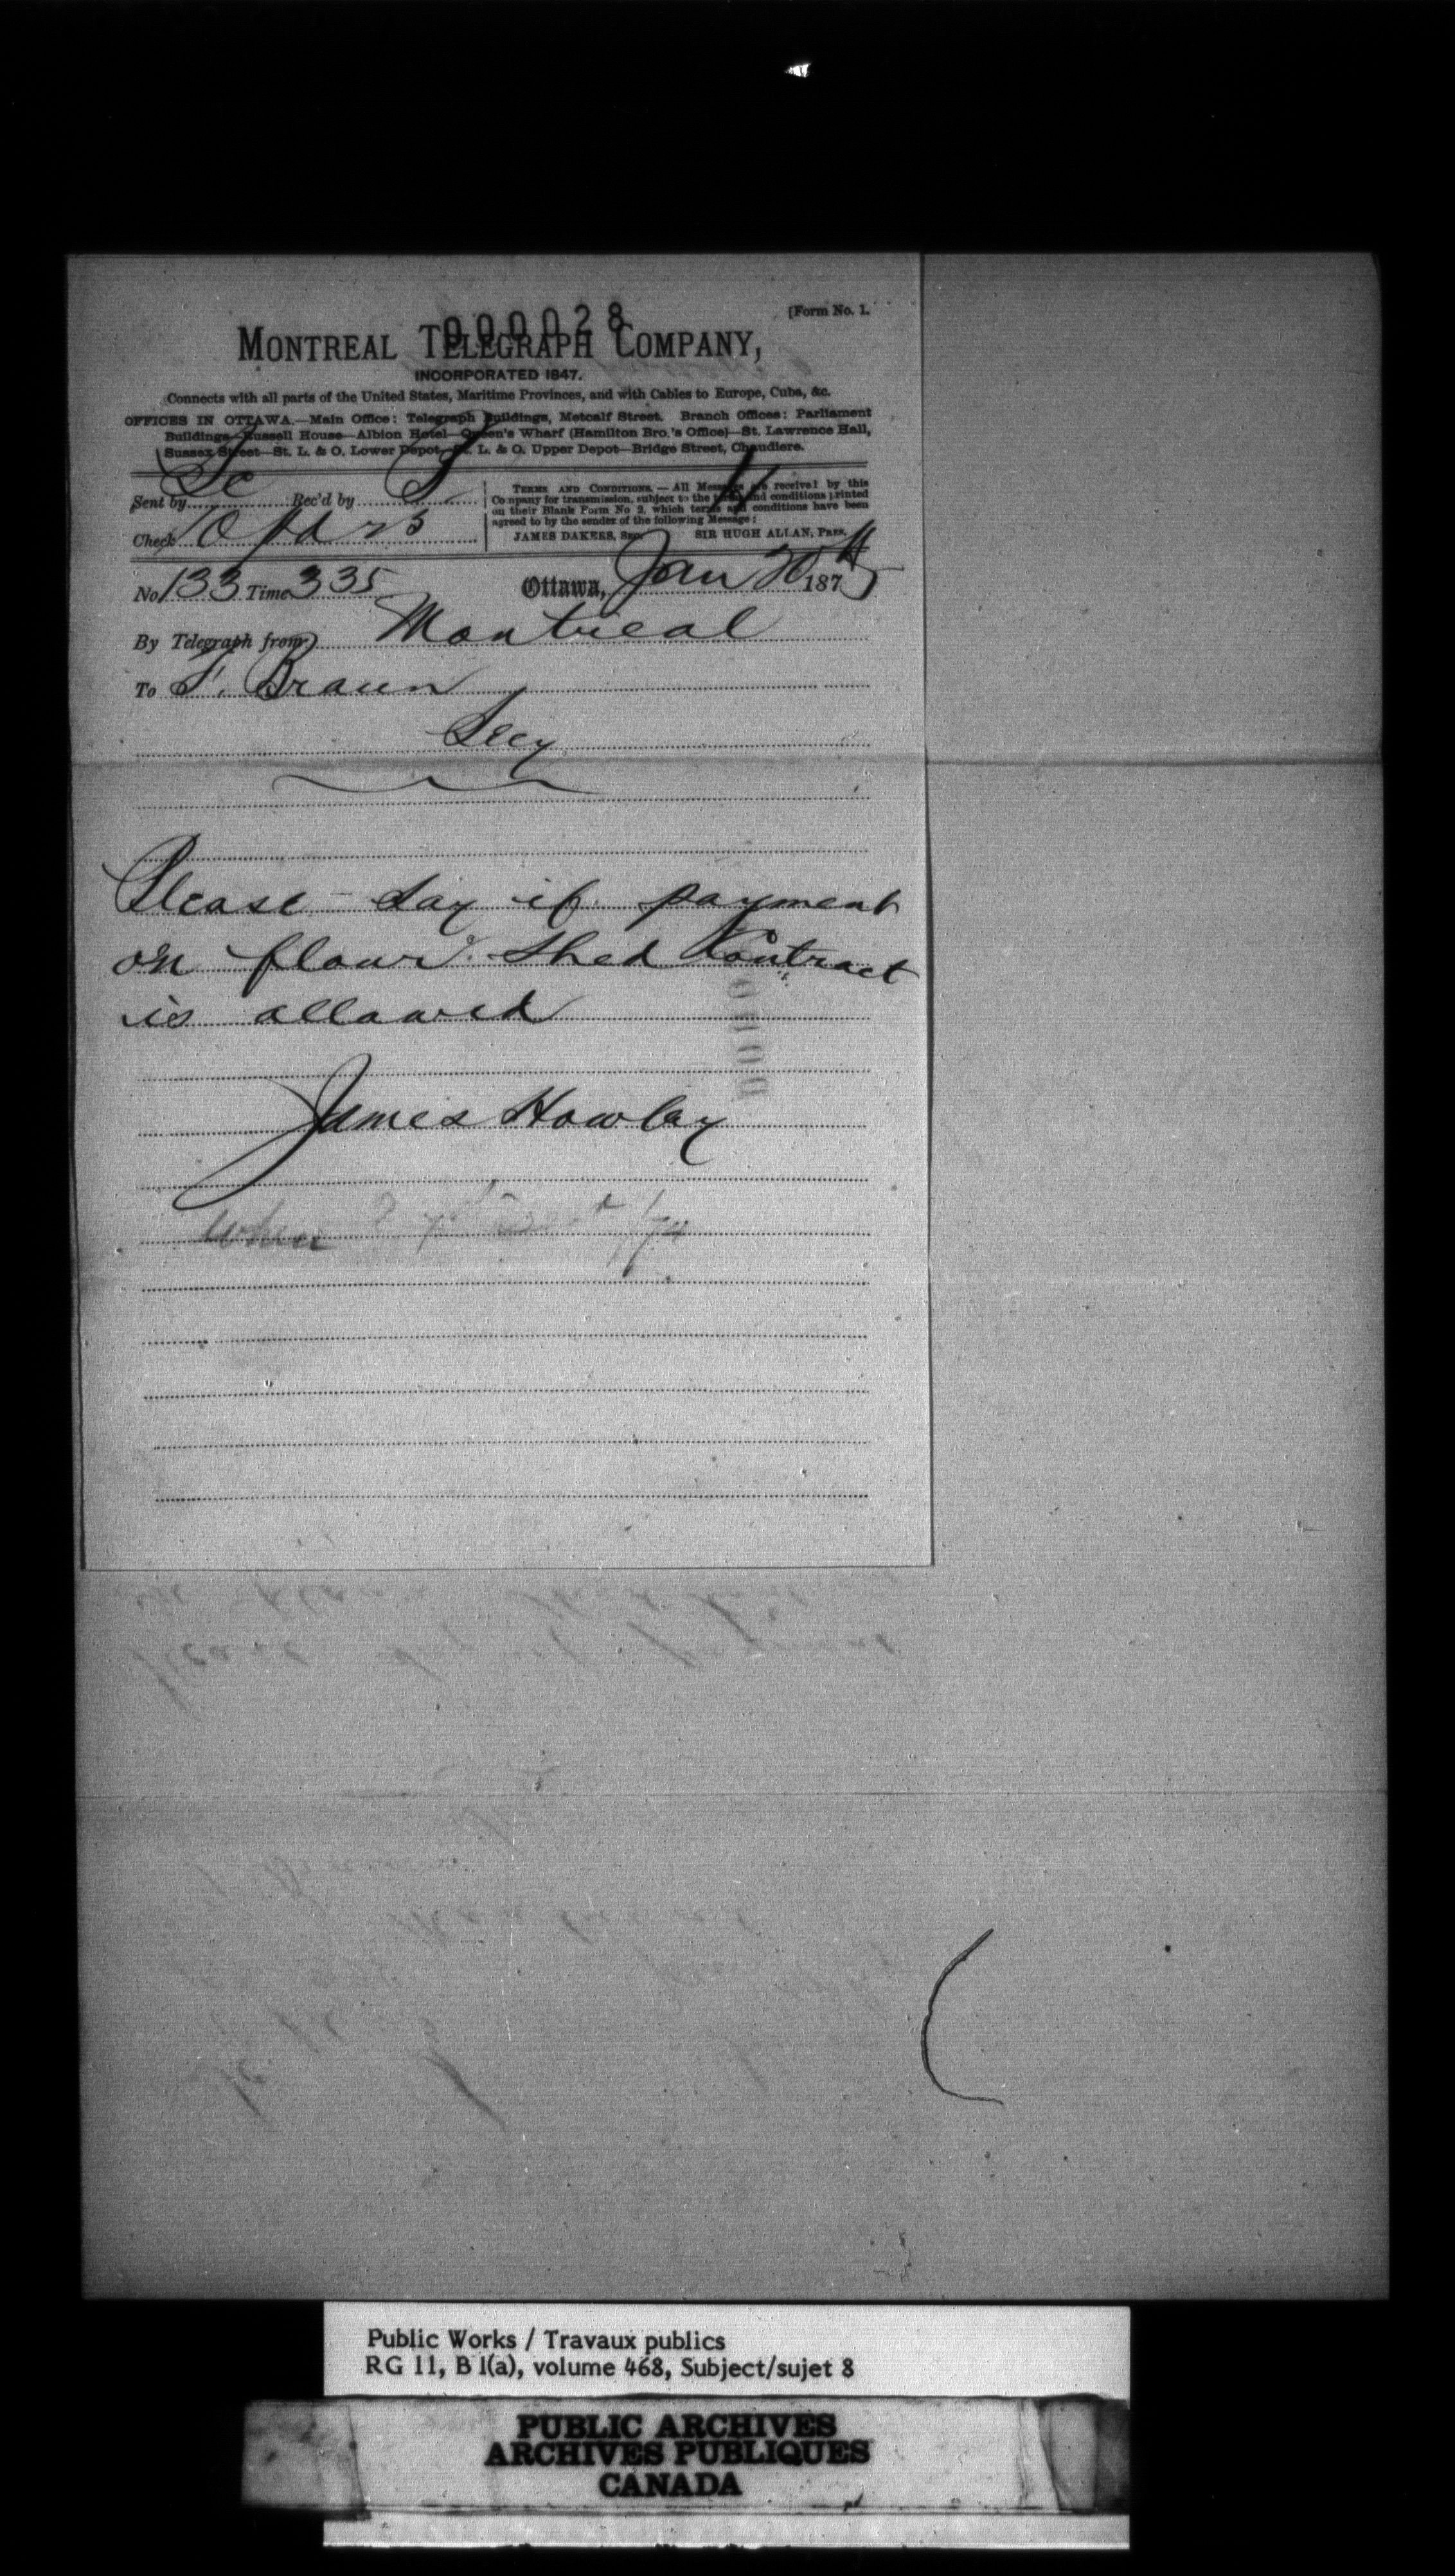 [Form No. 1.
000028
MONTREAL TELEGRAPH COMPANY,
INCORPORATED 1847.
Connects with all parts of the United States, Maritime Provinces, and with Cables to Europe, Cuba, &c.
OFFICES IN OTTAWA.—Main Office: Telegraph Buildings, Metcalf Street. Branch Offices: Parliament
Buildings—Russell House—Albion Hotel—Queen's Wharf (Hamilton Bro.'s Office)—St. Lawrence Hall,
Sussex Street—St. L. & O. Lower Depot—St. L. & O. Upper Depot—Bridge Street, Chaudiere.
Sent by Rec'd by
Check 10
TERMS AND CONDITIONS.—All Messages are received by this
Company for transmission, subject to the terms and conditions printed
on their Blank Form No 2, which terms and conditions have been
agreed to by the sender of the following Message:
JAMES DAKERS, Sec. SIR HUGH ALLAN, Pres.
No 133 Time 335 Ottawa, Jan 20th 1875
By Telegraph from Montreal
To F. Braun
Secy
Please say if payment
on flour shed Contract
is allowed
James Howley
When
Public Works / Travaux publics
RG 11, B 1(a), volume 468, Subject/sujet 8
PUBLIC ARCHIVES
ARCHIVES PUBLIQUES
CANADA